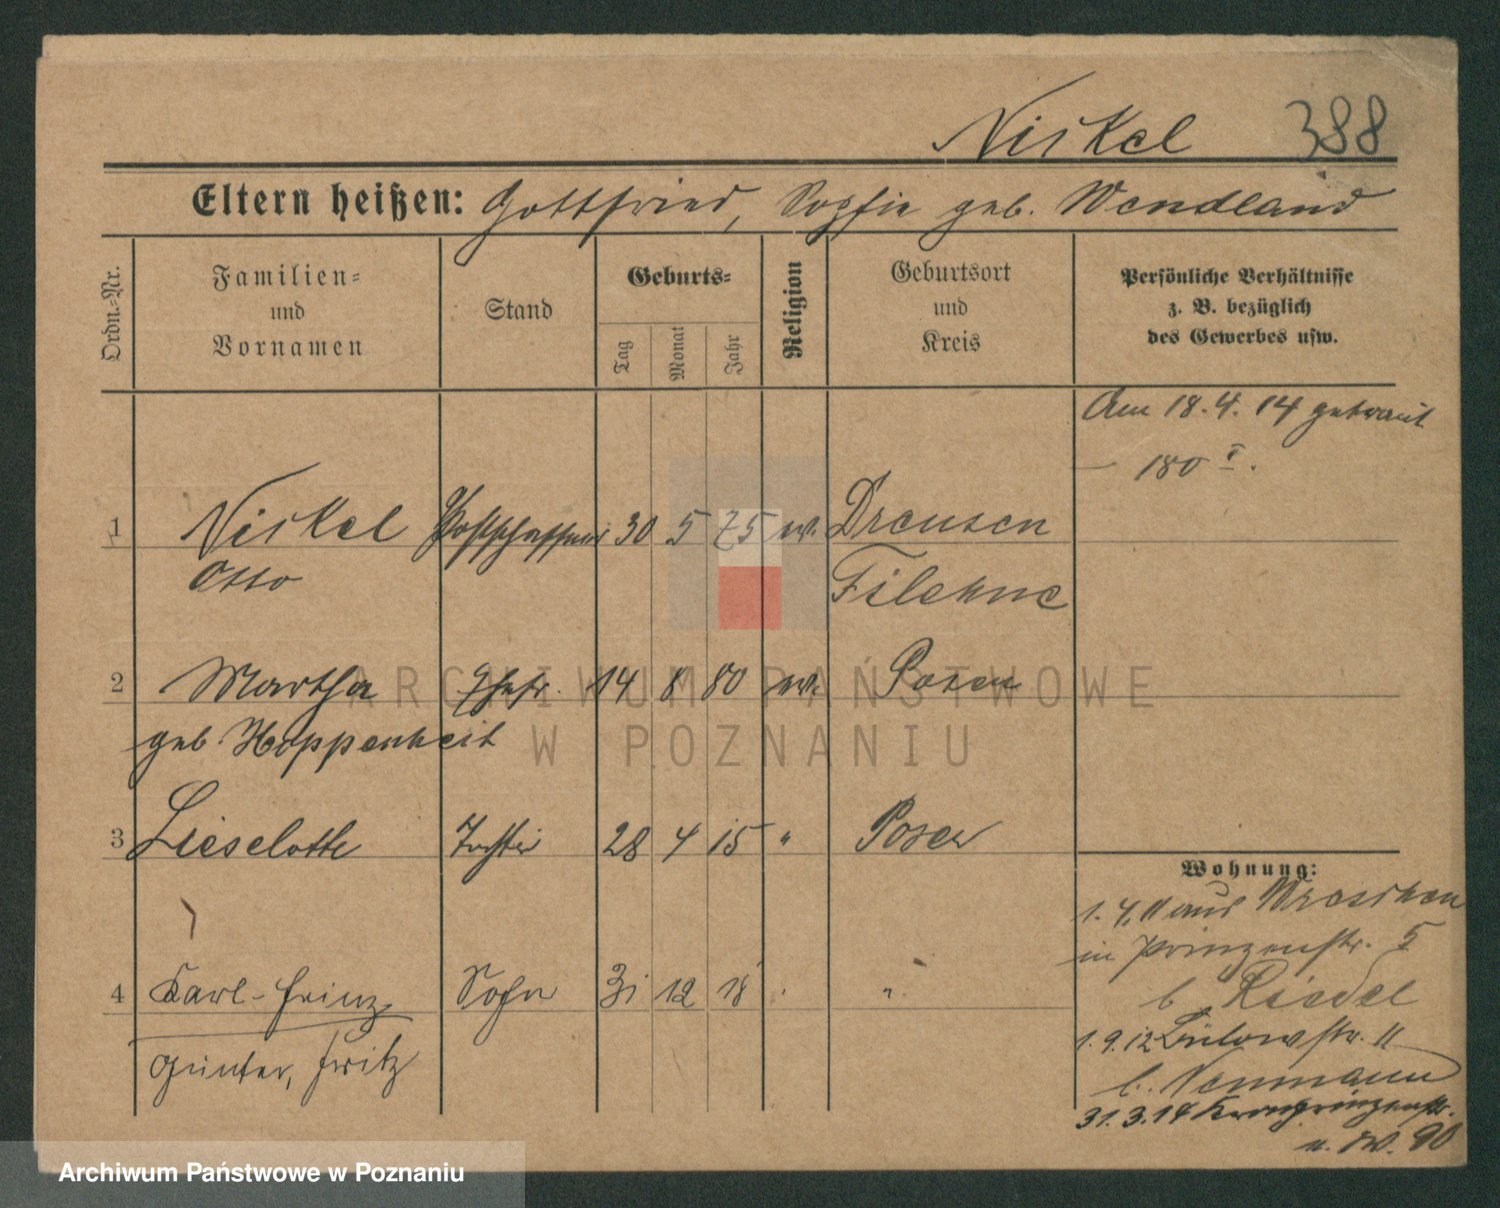 Niskel 388
Eltern heißen: Gottfried, Sophie geb. Wendland
Ordn.-Nr.
Familien- und Vornamen
Stand
Geburts-
Tag
Monat
Jahr
Religion
Geburtsort und Kreis
Persönliche Verhältnisse
z. B. bezüglich
des Gewerbes usw.
Am 18.4.14 getraut
180 I.
1 Niskel Postschaffner 30 5 75 ev. Dreusen
Otto Filehne
2 Martha Ehefr. 14 8 80 ev. Posen
geb. Hoppenheit
3 Lieselotte Tochter 28 4 15 " Posen
4 Karl-Heinz, Sohn 31 12 18 " "
Günter, Fritz
Wohnung:
1.4.11 aus Wreschen
in Prinzenstr. 5
b Riedel
1.9.12 Bülowstr. 11
b. Neumann
31.3.14 Kronprinzenstr.
90
ARCHIWUM PAŃSTWOWE
W POZNANIU
Archiwum Państwowe w Poznaniu